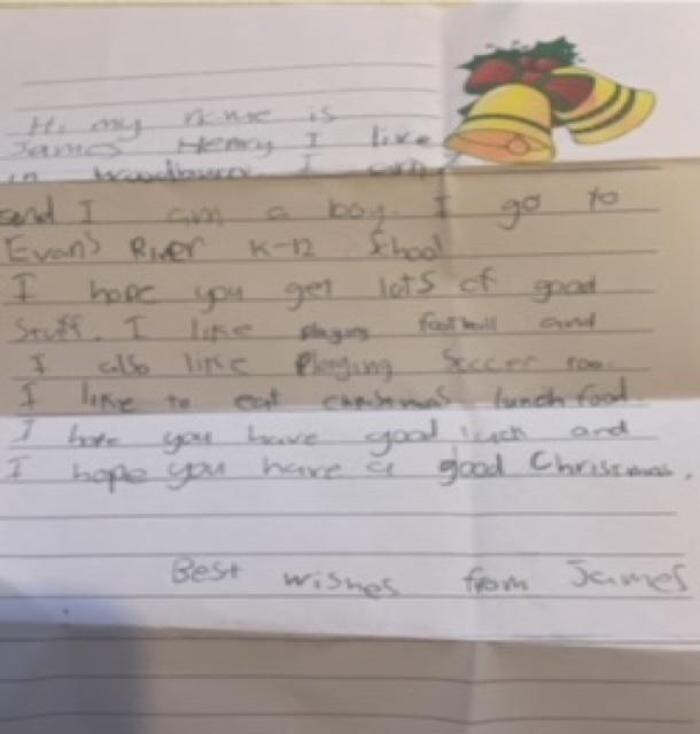 Hi my name is
James Henry I like
in woodburn I am
and I am a boy. I go to
Evans River K-12 School
I hope you get lots of good
stuff. I like playing football and
I also like Playing Soccer too.
I like to eat christmas lunch food
I hope you have good luck and
I hope you have a good Christmas.
Best wishes from James